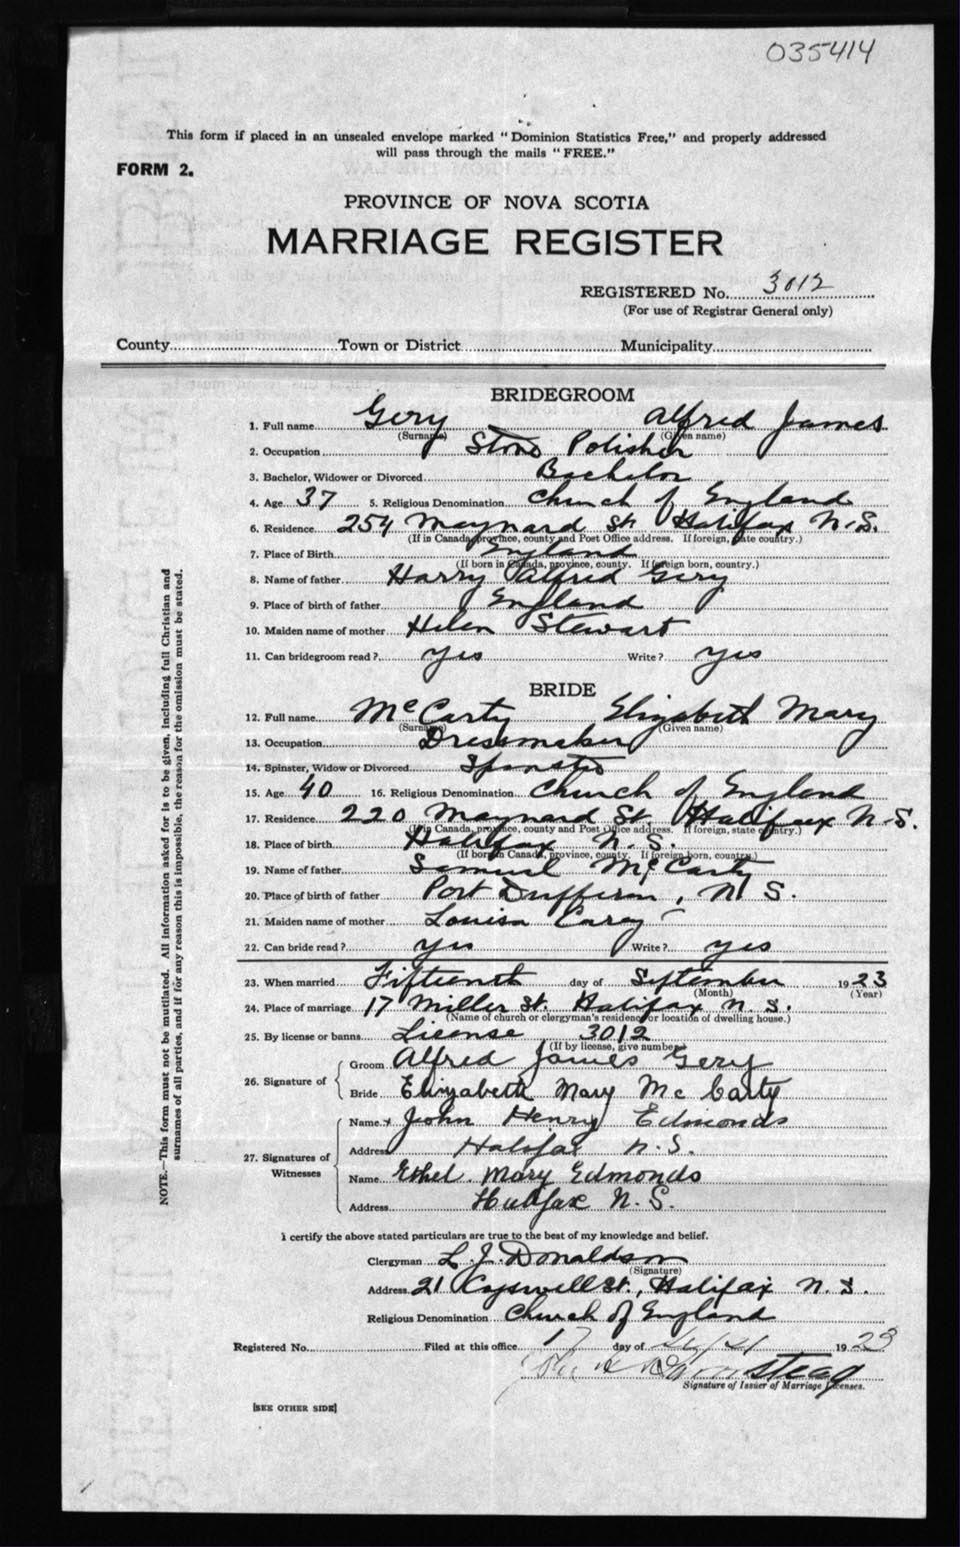 035414
This form if placed in an unsealed envelope marked "Dominion Statistics Free," and properly addressed
will pass through the mails "FREE."
FORM 2.
PROVINCE OF NOVA SCOTIA
MARRIAGE REGISTER
REGISTERED No. 3012
(For use of Registrar General only)
County Town or District Municipality
BRIDEGROOM
1. Full name Gery Alfred James
(Surname) (Given name)
2. Occupation Stone Polisher
3. Bachelor, Widower or Divorced Bachelor
4. Age 37 5. Religious Denomination Church of England
6. Residence 254 Maynard St. Halifax N.S.
(If in Canada, province, county and Post Office address. If foreign, state country.)
7. Place of Birth England
(If born in Canada, province, county. If foreign born, country.)
8. Name of father Harry Alfred Gery
9. Place of birth of father England
10. Maiden name of mother Helen Stewart
11. Can bridegroom read? yes Write? yes
BRIDE
12. Full name McCarty Elizabeth Mary
(Surname) (Given name)
13. Occupation Dressmaker
14. Spinster, Widow or Divorced Spinster
15. Age 40 16. Religious Denomination Church of England
17. Residence 220 Maynard St. Halifax N.S.
(If in Canada, province, county and Post Office address. If foreign, state country.)
18. Place of birth Halifax N.S.
(If born in Canada, province, county. If foreign born, country)
19. Name of father Samuel McCarty
20. Place of birth of father Port Dufferin, N S.
21. Maiden name of mother Louisa Carey
22. Can bride read? yes Write? yes
23. When married Fifteenth day of September 1923
(Month) (Year)
24. Place of marriage 17 Miller St. Halifax N.S.
(Name of church or clergyman's residence or location of dwelling house.)
25. By license or banns License 3012
(If by license, give number)
26. Signature of
Groom Alfred James Gery
Bride Elizabeth Mary Mc Carty
27. Signatures of Witnesses
Name x John Henry Edmonds
Address Halifax N.S.
Name Ethel Mary Edmonds
Address Halifax N.S.
I certify the above stated particulars are true to the best of my knowledge and belief.
Clergyman L. J. Donaldson
(Signature)
Address 21 Cogswell St., Halifax N.S.
Religious Denomination Church of England
Registered No. Filed at this office 17 day of 1923
Signature of Issuer of Marriage Licenses.
[SEE OTHER SIDE]
NOTE.—This form must not be mutilated. All information asked for is to be given, including full Christian and
surnames of all parties, and if for any reason this is impossible, the reason for the omission must be stated.